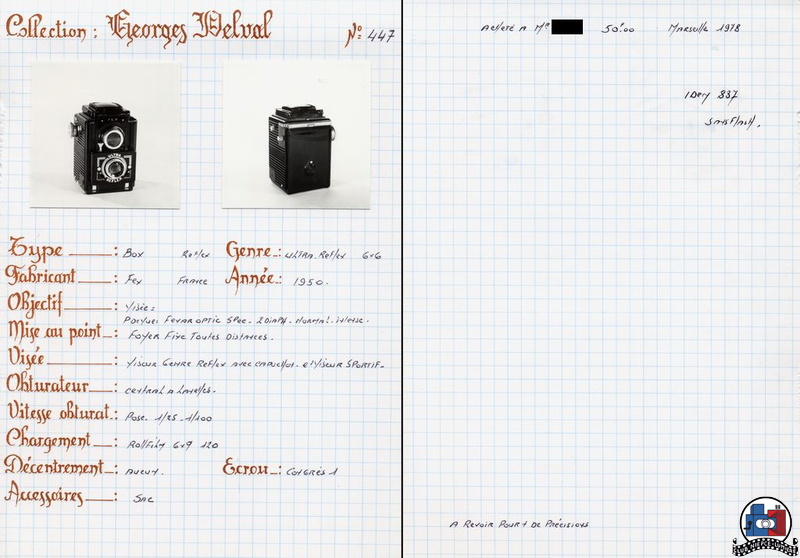 Collection : Georges Delval
Nº 447
Type : Box Reflex Genre : Ultra. Reflex 6x6
Fabricant : Fex France Année : 1950.
Objectif : Visée :
Fexar optic Spec. 2 Diaph. Normal. Intense.
Mise au point : Foyer Fixe Toutes Distances.
Visée : Viseur Genre Reflex avec capuchon. et Viseur Sportif.
Obturateur : central a Lamelles.
Vitesse obturat. : Pose. 1/25. 1/100
Chargement : Rollfilm 6x9 120
Décentrement : aucun. Ecrou : Congrès 1
Accessoires : Sac
Acheté a Mr 50F00 Marseille 1978
A Revoir Pour + de Précisions